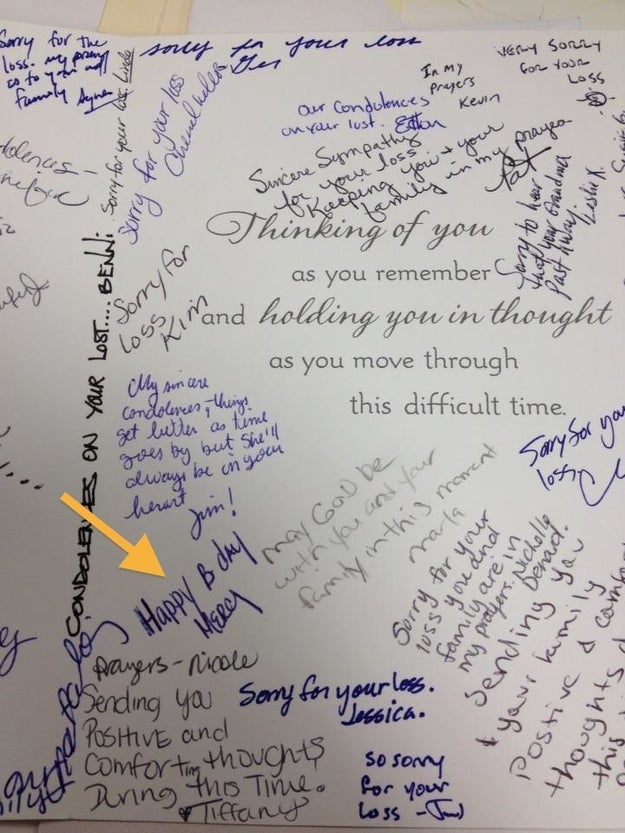 Sorry for the
loss. my prayers
go to you and
family
Sorry for your loss. Linda
sorry for your loss
Sorry for your loss
our condolences
on your lost.
In my
prayers
Kevin
VERY SORRY
FOR YOUR
LOSS
Sincere Sympathy
for your loss
Keeping you + your
family in my prayers
Pat
Sorry to hear
that your Grandma
Past Away.
Leslie K.
Thinking of you
as you remember
and holding you in thought
as you move through
this difficult time.
CONDOLENCES ON YOUR LOST.... BENNI
Sorry for
loss
Kim
My sincere
condolences, things
get better as time
goes by but she'll
always be in your
heart
Jim!
Sorry for you
loss
May God be
with you and your
family in this moment
Marla
Happy B day
Mercy
Sorry for your
loss you and
family are in
my prayers. Nichelle
Sending you
& your family
Positive &
thoughts
this
Prayers - Nicole
Sending you
Positive and
Comforting thoughts
During this Time.
Tiffany
Sorry for your loss.
Jessica.
So sorry
for your
loss